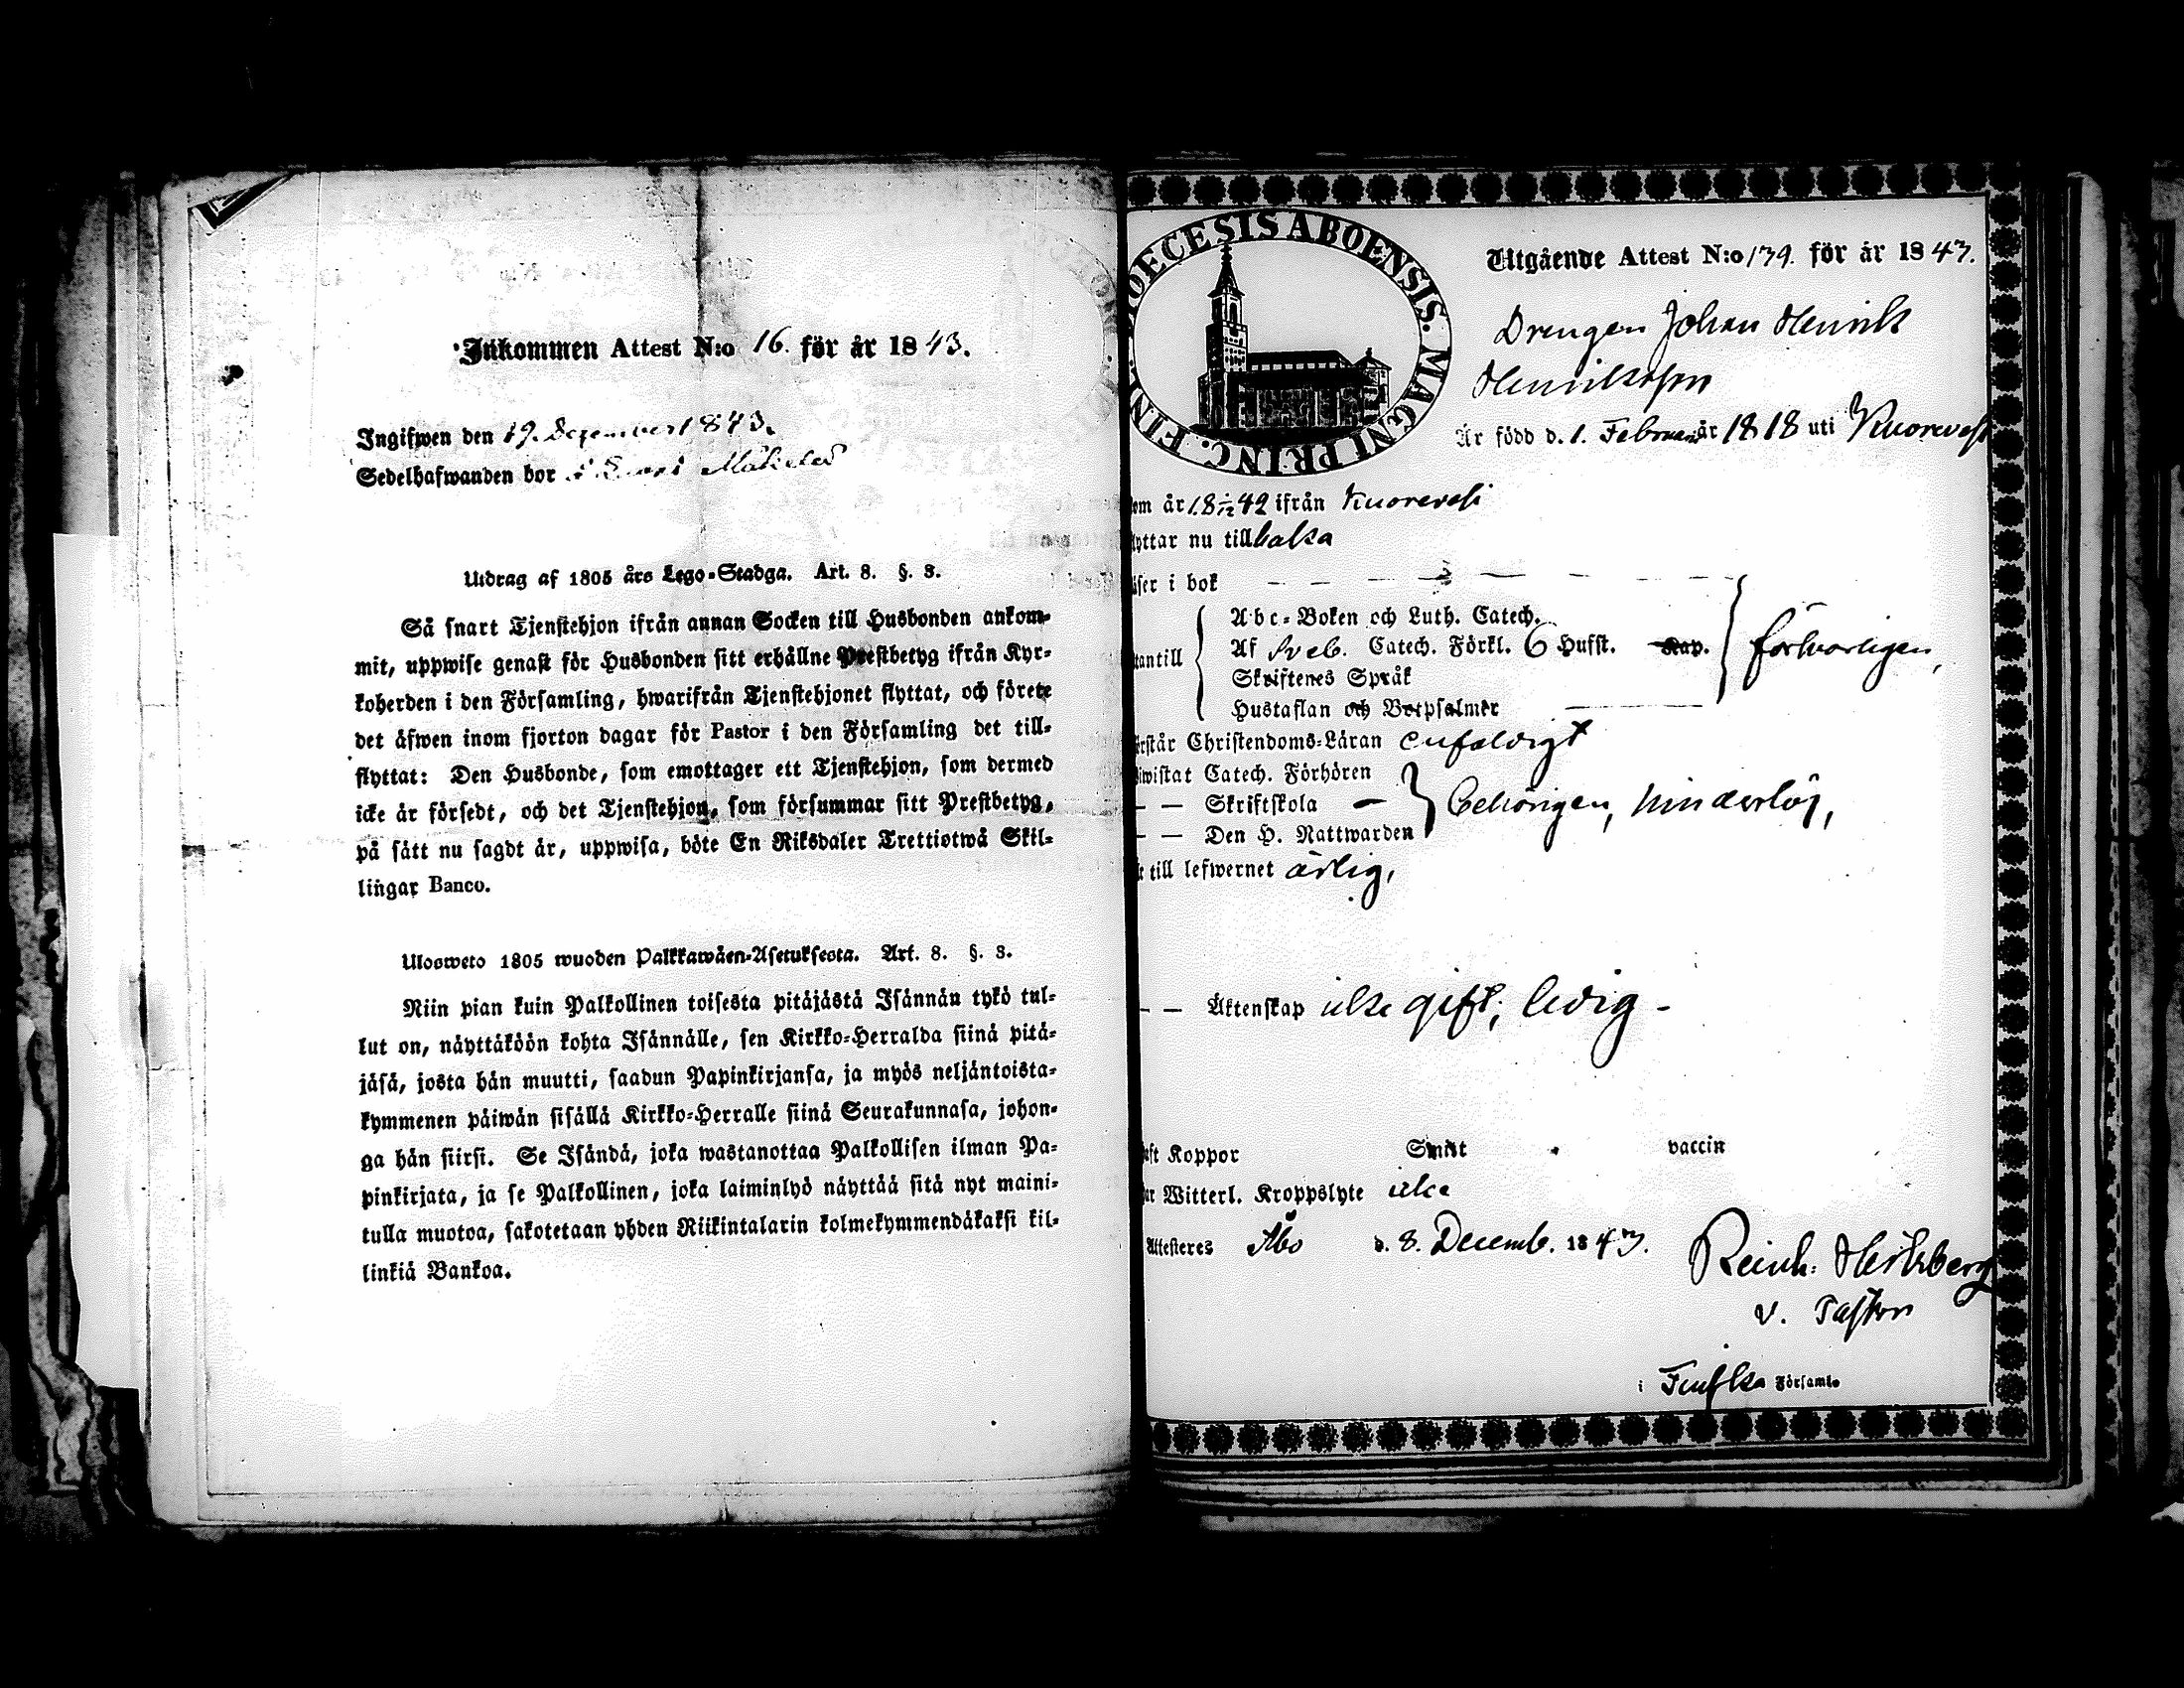 Inkommen Attest N:o 16. för år 1843.
Ingifwen den 19. Dezember 1843.
Sedelhafwanden bor
Utdrag af 1805 års Lego-Stadga. Art. 8. §. 3.
Så snart Tjenstehjon ifrån annan Socken till Husbonden ankom-
mit, uppwise genast för Husbonden sitt erhållne Prestbetyg ifrån Kyr-
koherden i den Församling, hwarifrån Tjenstehjonet flyttat, och förete
det äfwen inom fjorton dagar för Pastor i den Församling det till-
flyttat: Den Husbonde, som emottager ett Tjenstehjon, som dermed
icke är försedt, och det Tjenstehjon, som försummar sitt Prestbetyg,
på sätt nu sagdt är, uppwisa, böte En Riksdaler Trettiotwå Skil-
lingar Banco.
Ulosweto 1805 wuoden Palkkawäen-Asetuksesta. Art. 8. §. 3.
Niin pian kuin Palkollinen toisesta pitäjästä Isännän tykö tul-
lut on, näyttäköön kohta Isännälle, sen Kirkko-Herralda siinä pitä-
jäsä, josta hän muutti, saadun Papinkirjansa, ja myös neljäntoista-
kymmenen päiwän sisällä Kirkko-Herralle siinä Seurakunnasa, johon-
ga hän siirsi. Se Isändä, joka wastanottaa Palkollisen ilman Pa-
pinkirjata, ja se Palkollinen, joka laiminlyö näyttää sitä nyt maini-
tulla muotoa, sakotetaan yhden Riikintalarin kolmekymmendäkaksi kil-
linkiä Bankoa.
DIOECESIS ABOENSIS. MAGNI PRINC. FIN
Utgående Attest N:o 139. för år 1843.
Drengen Johan Henrik
Henriksson
Är född d. 1. Februari år 1818 uti Kuorevesi
om år 18 42 ifrån Kuorevesi
lyttar nu tillbaka
äser i bok
utantill
Abc-Boken och Luth. Catech.
Af Sveb. Catech. Förkl. 6 Hufst. Kap.
Skriftenes Språk
Hustaflan och Botpsalmer
förswarligen,
örstår Christendoms-Läran enfaldigt
iwistat Catech. Förhören
— — Skriftskola —
— — Den H. Nattwarden
behörigen, hinderlös,
till lefwernet ärlig,
— — Äktenskap icke gift, ledig -
aft Koppor Smitt vaccin
ar Witterl. Kroppslyte icke
Attesteres Åbo d. 8. Decemb. 1843.
Reinh. Hertzberg
v. Pastor
i Finska Församl.